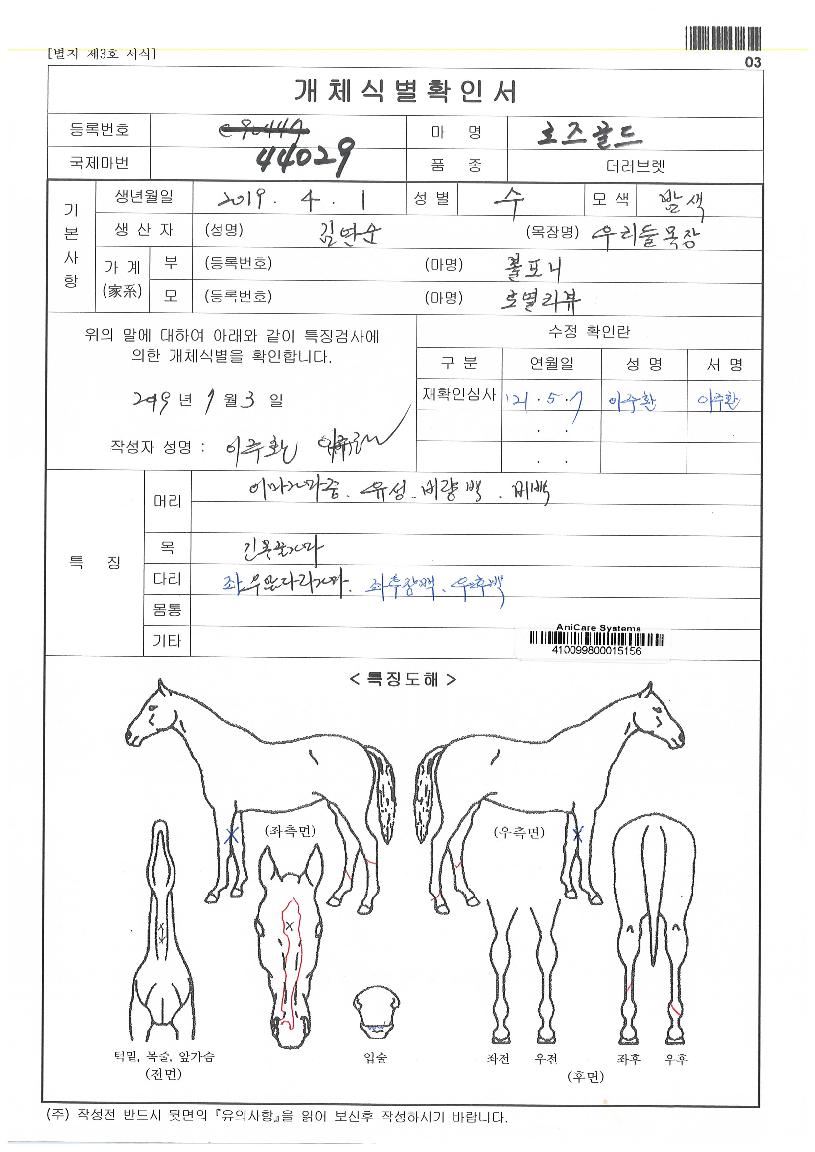 [별지 제3호 서식]
03
개체식별확인서
등록번호
마 명 로즈골드
국제마번 44029
품 종 더러브렛
생년월일 2019. 4. 1 성별 수 모색 밤색
기본사항
생산자 (성명) 김연순 (목장명) 우리들목장
가계 (家系) 부 (등록번호) (마명) 볼포니
모 (등록번호) (마명) 로열리뷰
위의 말에 대하여 아래와 같이 특징검사에
의한 개체식별을 확인합니다.
2019 년 7 월 3 일
작성자 성명 : 이주환
수정 확인란
구 분 연월일 성 명 서 명
재확인심사 '21. 5. 7 이주환 이주환
. .
. .
특 징
머리 이마가마중. 유성. 비량백. 비백
목 긴목끝가마
다리 좌우앞다리가마. 좌후장백. 우후백
몸통
기타
AniCare Systems
410099800015156
< 특징도해 >
(좌측면) (우측면)
턱밑, 목줄, 앞가슴
(전면)
입술
좌전 우전
좌후 우후
(후면)
(주) 작성전 반드시 뒷면의 『유의사항』을 읽어 보신후 작성하시기 바랍니다.